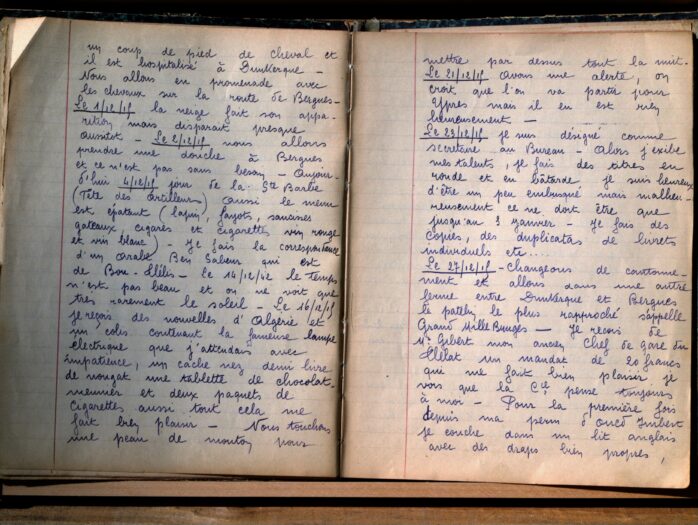 un coup de pied de cheval et
il est hospitalisé à Dunkerque -
Nous allons en promenade avec
les chevaux sur la route de Bergues -
Le 1/12/15 la neige fait son appa-
rition mais disparait presque
aussitot - Le 2/12/15 nous allons
prendre une douche à Bergues
et ce n'est pas sans besoin - Aujour-
d'hui 4/12/15 jour de la Ste Barbe
(Fête des artilleurs) aussi le menu
est épatant (lapin, fayots, saucisses
gateaux, cigares et cigarettes vin rouge
et vin blanc) - Je fais la correspondance
d'un arabe Ben Sabeur qui est
de Bou-Hélis - Le 14/12/42 le temps
n'est pas beau et on ne voit que
très rarement le soleil - Le 16/12/15
je reçois des nouvelles d'Algérie et
un colis contenant la fameuse lampe
électrique que j'attendais avec
impatience, un cache nez demi livre
de nougat une tablette de chocolat
meunier et deux paquets de
cigarettes aussi tout cela me
fait bien plaisir - Nous touchons
une peau de mouton pour
mettre par dessus tout la nuit.
Le 21/12/15 avons une alerte, on
croit que l'on va partir pour
Ypres mais il en est rien
heureusement -
Le 23/12/15 je suis désigné comme
secretaire au Bureau - Alors j'exibe
mes talents, je fais des titres en
ronde et en bâtarde je suis heureux
d'être un peu embusqué mais malheu-
reusement ce ne doit être que
jusqu'au 1 janvier - Je fais des
copies, des duplicatas de livrets
individuels etc....
Le 27/12/15 - Changeons de cantonne-
ment et allons dans une autre
ferme entre Dunkerque et Bergues
le patelin le plus rapproché s'appelle
Grand Mille Bruges - Je reçois de
Mr Gibert mon ancien Chef de gare du
Tlélat un mandat de 20 francs
qui me fait bien plaisir je
vois que la Cie pense toujours
à moi - Pour la première fois
depuis ma perm d'Oued Imbert
je couche dans un lit anglais
avec des draps bien propres,